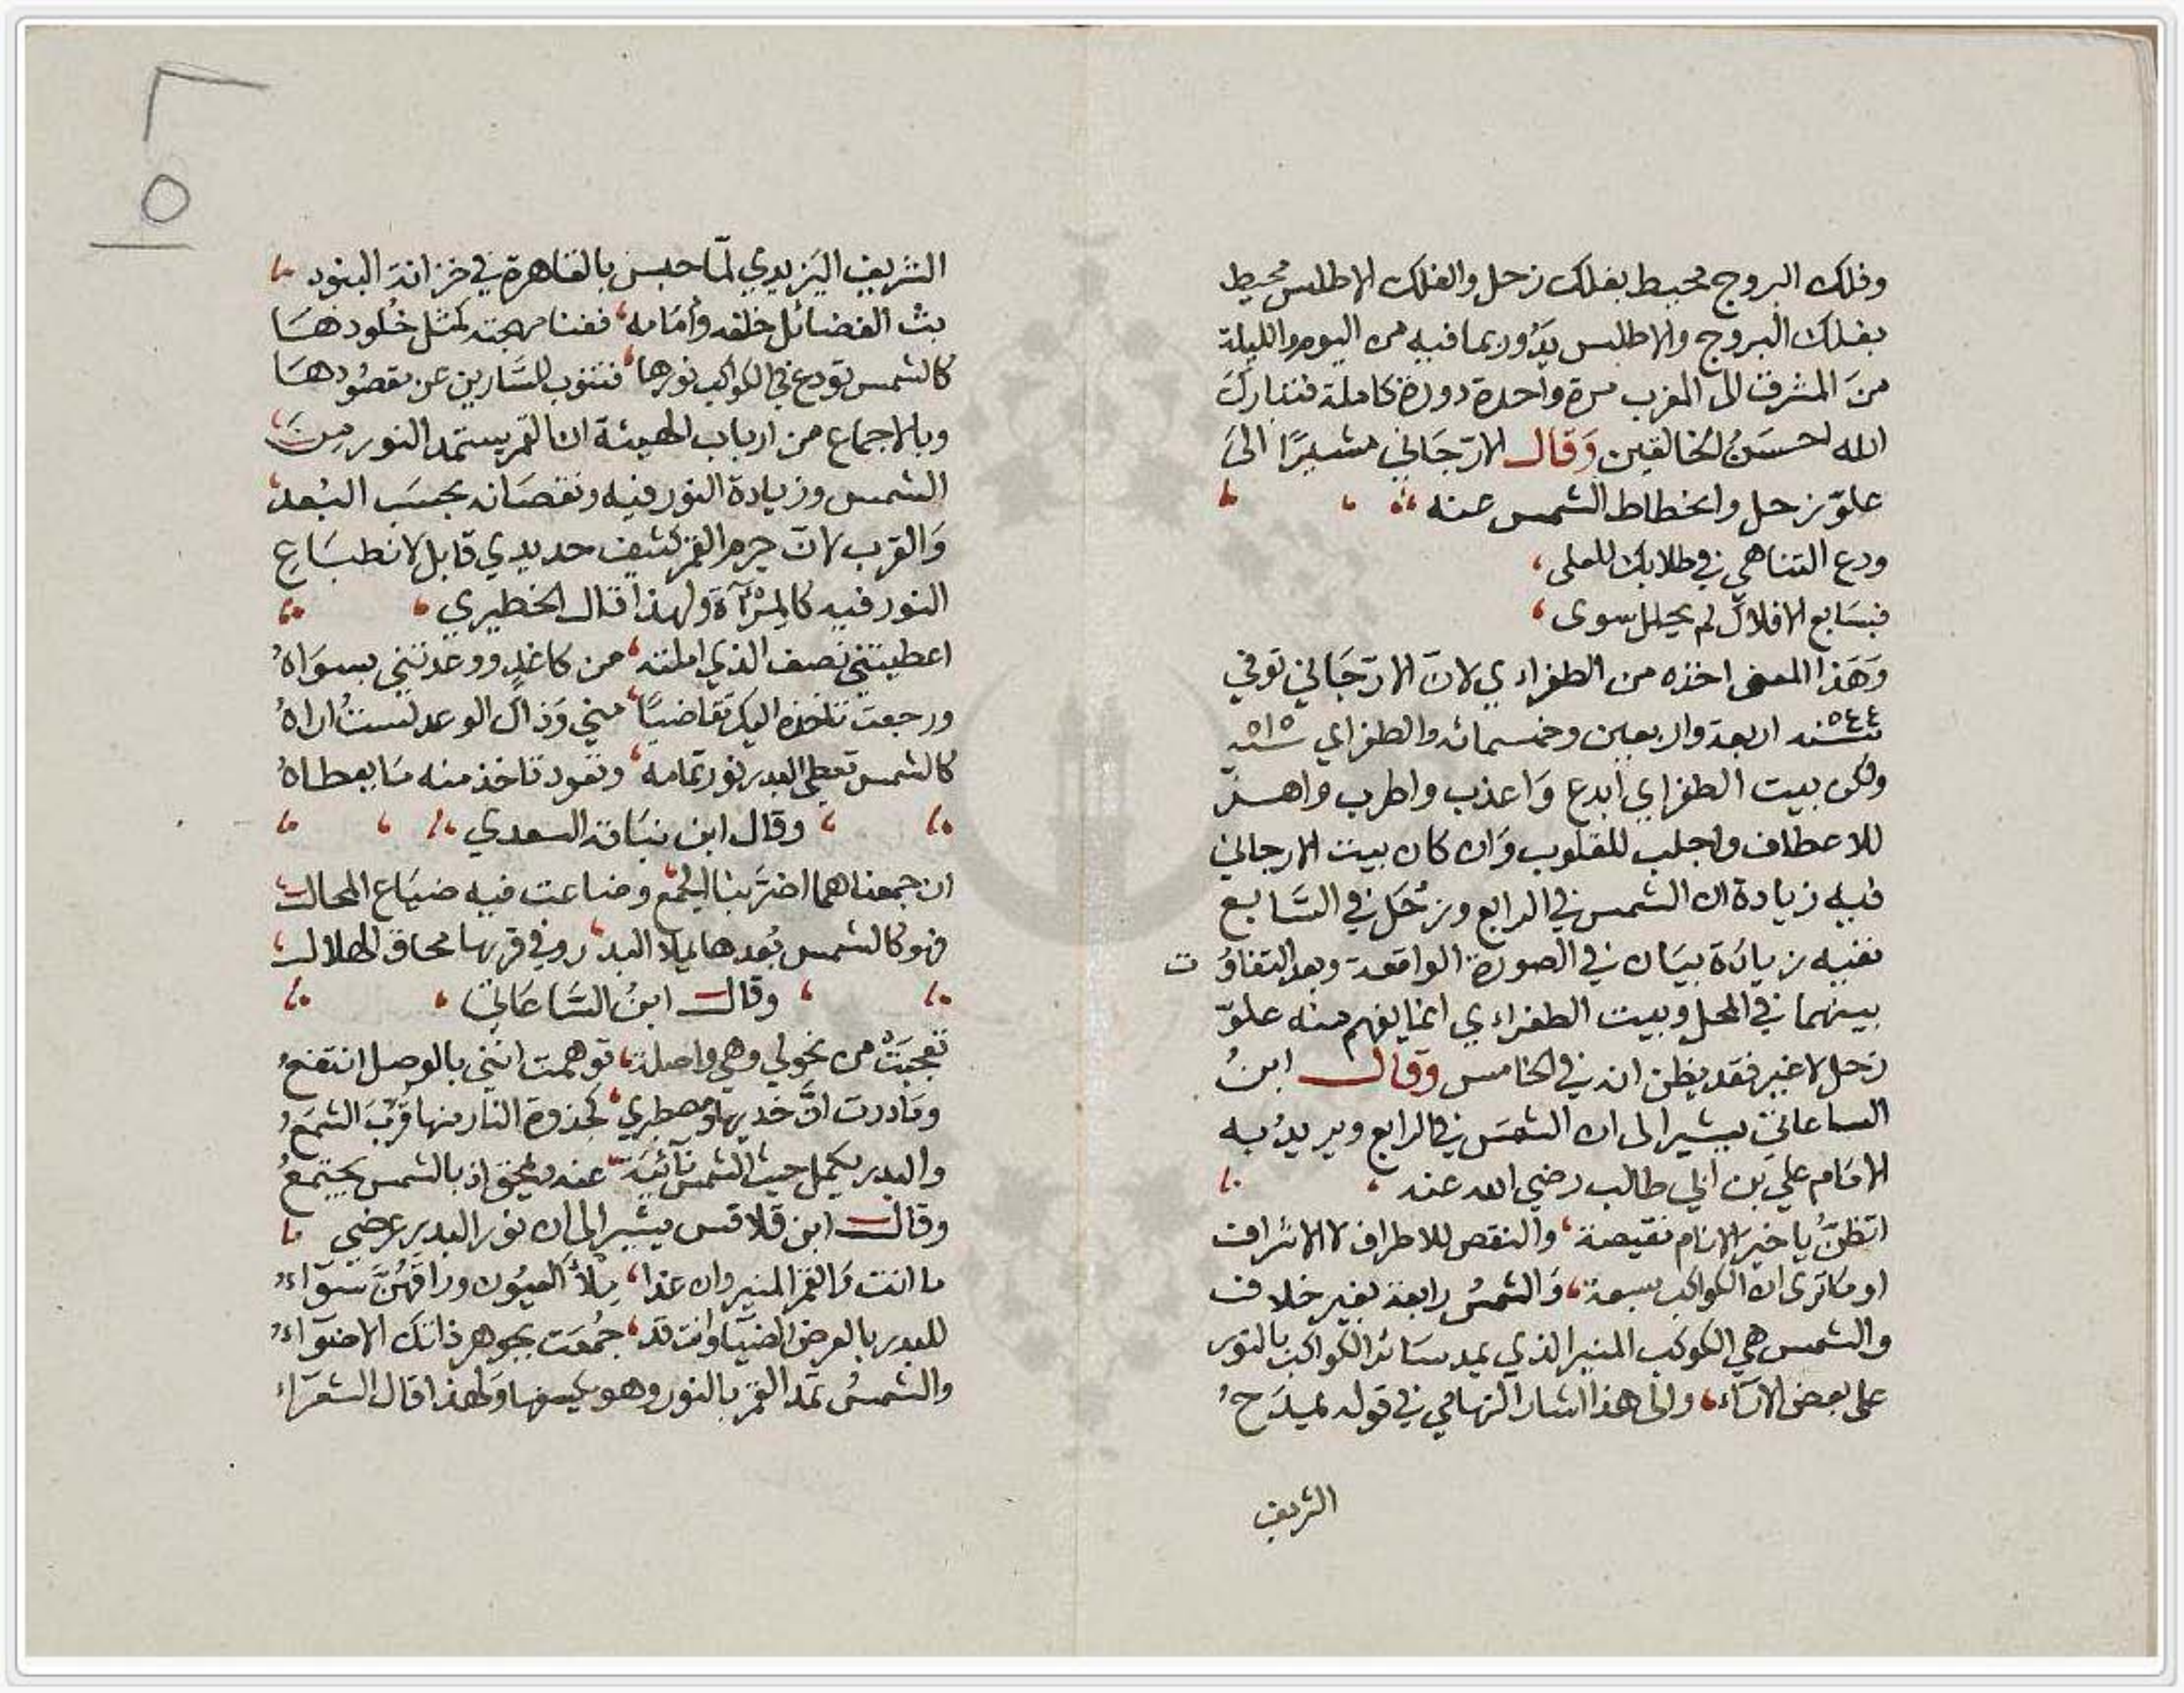 وفلك البروج محيط بفلك زحل والفلك الاطلس محيط
بفلك البروج والاطلس يَدُور بما فيه من اليوم والليلة
منَ المشرق الى المغرب مرة واحدة دورة كاملة فتبارك
الله احسَنُ الخالقين وَقال الارّجَاني مشيرًا الىَ
علوّ زحل وانحطاط الشمس عنه
ودع التناهي في طلابك للعلى،
فبسَابع الافلاك لم يحلل سوى،
وَهَذا المعنى اخذه من الطغراءي لانّ الارّجَاني توفي
٥٤٤ سنة اربعة واربعين وخمسمائة والطغراي ٥١٥
ولكن بيت الطغراي ابدع وَاعذب واطرب واهزّ
للاعطاف واجلب للقلوب وَان كان بيت الارجاني
فيه زيادة ان الشمس في الرابع وزُحَل في السَّابع
ففيه زيادَة بيَان في الصورة الواقعة وبعد التفاوُت
بينهما في المحل وبيت الطغراءي انما يفهم منه علوّ
زحل لا غير فقد يظن انه في الخامس وقال ابنُ
الساعاتي يشير الى ان الشمسَ في الرابع ويريدُ به
الامَام علي بن ابي طالب رضي الله عنه
اتظنُّ يا خيرَ الانام نقيصة، والنقص للاطراف لا الاشراف
اومَا ترى ان الكواكب سبعة، وَالشمسُ رابعة بغير خلاف
والشمس هي الكوكب المنير الذي يمد سَائر الكواكب بالنور
على بعض الارآء، والى هذا اشار التهامي في قوله يمدَحُ
الشريف
الشريف اليَزيدي لمّا حبس بالقاهرة في خزانة البنود
بث الفضائل خلفه وأمَامه، ففنا مهجته كمثل خُلودهَا
كالشمس تودع في الكواكب نورها، فتنوب للسَّارين عن مقصُودهَا
وبالاجماع من ارباب الهيئة ان القمر يستمد النور مِنَ
الشمس وزيادة النور فيه ونقصَانه بحسَب البُعد
وَالقرب لانّ جرم القمر كثيف حديدي قابل لانطبَاعِ
النور فيه كالمِرْآة ولهذا قال الخطيري
اعطيتني نصف الذي املته، من كاغدٍ ووعدتني بسوَاهُ
ورجعت تأخذه اليك تقاضيًا، مني وَذاك الوعد لستُ اراهُ
كالشمس تعطي البدر نور تمامه، وتعود تاخذ منه مَا يعطاهُ
وقال ابن نبَاتة السعدي
ان جمعناهما اضرّ بنا الجمع وضاعت فيه ضيَاع المحال
فهو كالشمس بُعدها يملأ البدر وفي قربها محاق الهلال
وقال ابنُ السَّاعَاتي
تعجبَتْ من نحولي وهي واصلة، توهمت انني بالوصل انتفعُ
ومَا درت انَّ خديها ومصطبري، كجذوة النار منها قَرُبَ الشمَعُ
والبدر يكمل حيث الشمس نآئيَة، عنه ويمحق اذ بالشمس يجتمعُ
وقال ابن قلاقس يشير الى ان نور البدر عرضي
ما انت وَالقمر المنير وان غدا، مِلأَ العيُون ورافهُنَّ سَوآءُ
للبدر بالعرض الضيَا وانت قد، جُمعَت بجوهر ذاتك الاضوَآءُ
والشمسُ تمد القمر بالنور وهو يكسفها وَلهذا قال الشعرَآء